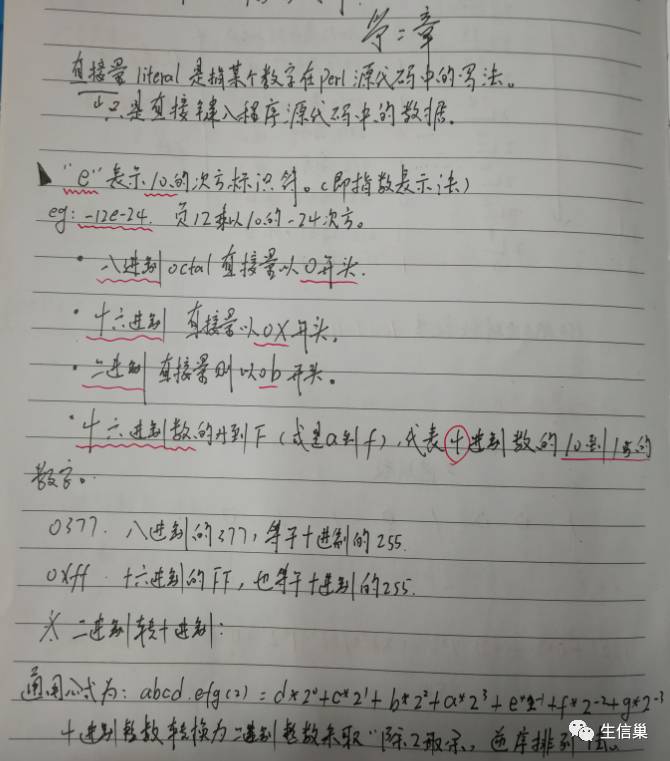 第二章
直接量 literal 是指某个数字在perl 源代码中的写法。
↓只是直接键入程序源代码中的数据。
"e"表示10的次方标识符。(即指数表示法)
eg: -12e-24. 负12乘以10的-24次方。
· 八进制octal 直接量以0开头.
· 十六进制 直接量以0X开头。
· 二进制 直接量则以0b开头。
· 十六进制数的A到F(或是a到f),代表十进制数的10到15的
数字。
0377. 八进制的377,等于十进制的255.
0Xff. 十六进制的FF,也等于十进制的255.
※ 二进制转十进制:
通用公式为: abcd.efg(2) = d*2⁰+c*2¹+b*2²+a*2³+e*2⁻¹+f*2⁻²+g*2⁻³
十进制整数转换为二进制整数采取"除2取余,逆序排列"法。
生信巢